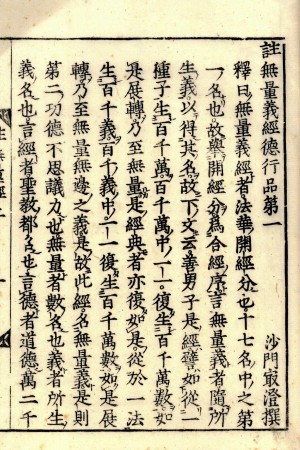 註無量義經德行品第一
沙門最澄撰
釋曰無量義經者法華開經分也十七名中之第
一名也故擧開經分爲合經序言無量義者隨所
生義以得其名故下文云善男子是經譬如從一
種子生百千萬百千萬中一一復生百千萬數如
是展轉乃至無量是經典者亦復如是從於一法
生百千義百千義中一一復生百千萬數如是展
轉乃至無量無邊之義是故此經名無量義是則
第二功德不思議力也無量者數名也義者所生
義名也言經者聖教都名也言德者道德萬二千